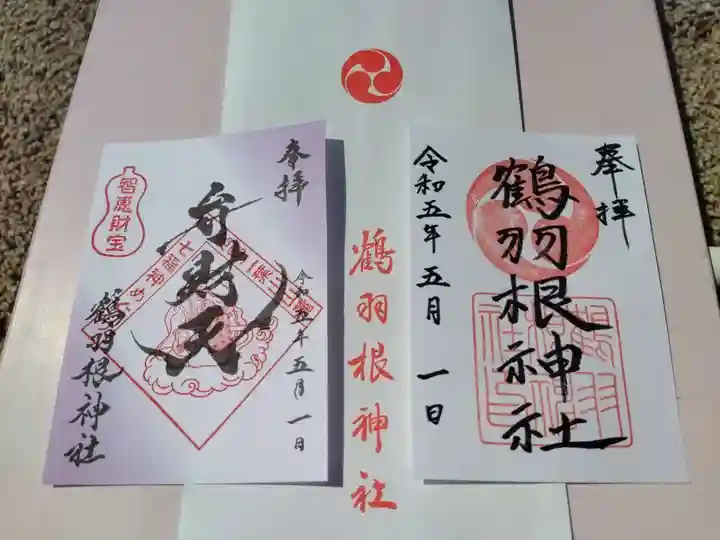 奉拝
智恵財宝
弁財天
七福神め
令和五年五月一日
鶴羽根神社
鶴羽根神社
奉拝
鶴羽根神社
令和五年五月一日